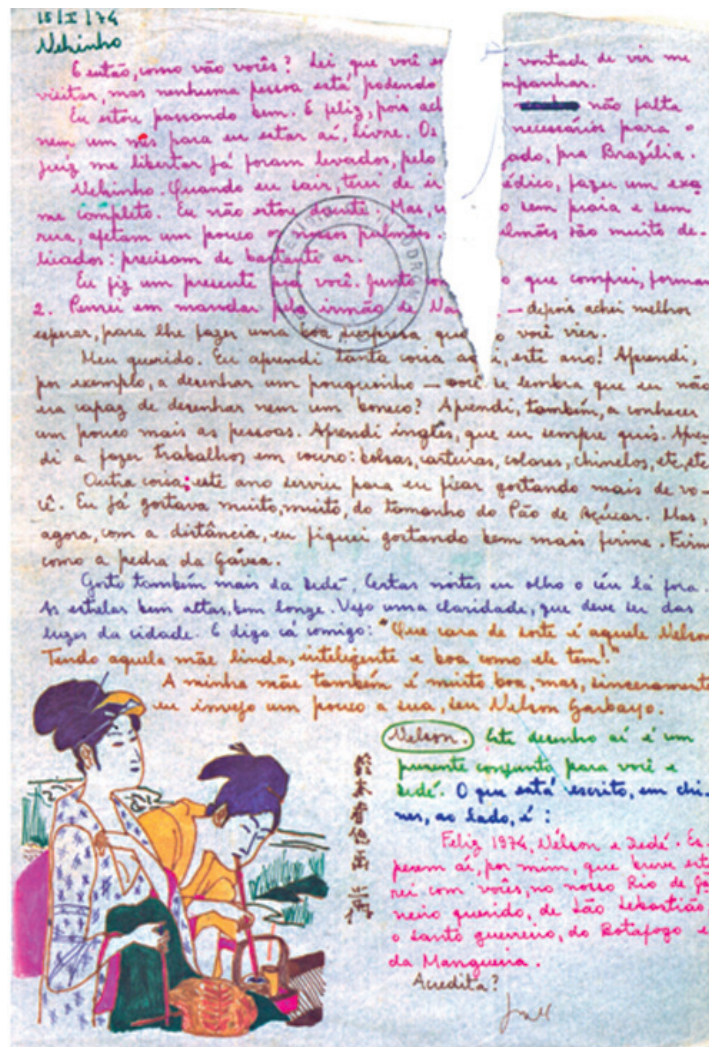 15/I/74
Nelsinho
E então, como vão vocês? Sei que você es vontade de vir me
visitar, mas nenhuma pessoa está podendo mpanhar.
Eu estou passando bem. E feliz, pois ach não falta
nem um mês para eu estar aí, livre. Os necessários para o
juiz me libertar já foram levados, pelo ado, pra Brazília.
Nelsinho. Quando eu sair, terei de ir édico, fazer um exa
me completo. Eu não estou doente. Mas, o sem praia e sem
rua, afetam um pouco os nossos pulmões. ulmões são muito de-
licados: precisam de bastante ar.
Eu fiz um presente pra você. Junto com o que comprei, formam
2. Pensei em mandar pela irmão de Na — depois achei melhor
esperar, para lhe fazer uma boa surpresa qua o você vier.
Meu querido. Eu aprendi tanta coisa aq i, este ano! Aprendi,
por exemplo, a desenhar um pouquinho — você se lembra que eu não
era capaz de desenhar nem um boneco? Aprendi, também, a conhecer
um pouco mais as pessoas. Aprendi inglês, que eu sempre quis. Apren
di a fazer trabalhos em couro: bolsas, carteiras, colares, chinelos, etc, etc
Outra coisa; este ano serviu para eu ficar gostando mais de vo-
cê. Eu já gostava muito, muito, do tamanho do Pão de Açúcar. Mas,
agora, com a distância, eu fiquei gostando bem mais firme. Firme
como a pedra da Gávea.
Gosto também mais da Dedé. Certas noites eu olho o céu lá fora.
As estrelas bem altas, bem longe. Vejo uma claridade, que deve ser das
luzes da cidade. E digo cá comigo: "Que cara de sorte é aquele Nelson
Tendo aquela mãe linda, inteligente e boa como ele tem!"
A minha mãe também é muito boa, mas, sinceramente
eu invejo um pouco a sua, seu Nelson Garbayo.
Nelson. Este desenho aí é um
presente conjunto para você e
Dedé. O que está escrito, em chi-
nes, ao lado, é:
Feliz 1974, Nélson e Dedé. Es-
perem aí, por mim, que breve esta
rei com vocês, no nosso Rio de Ja
neiro querido, de São Sebastião,
o santo guerreiro, do Botafogo e
da Mangueira.
Acredita?